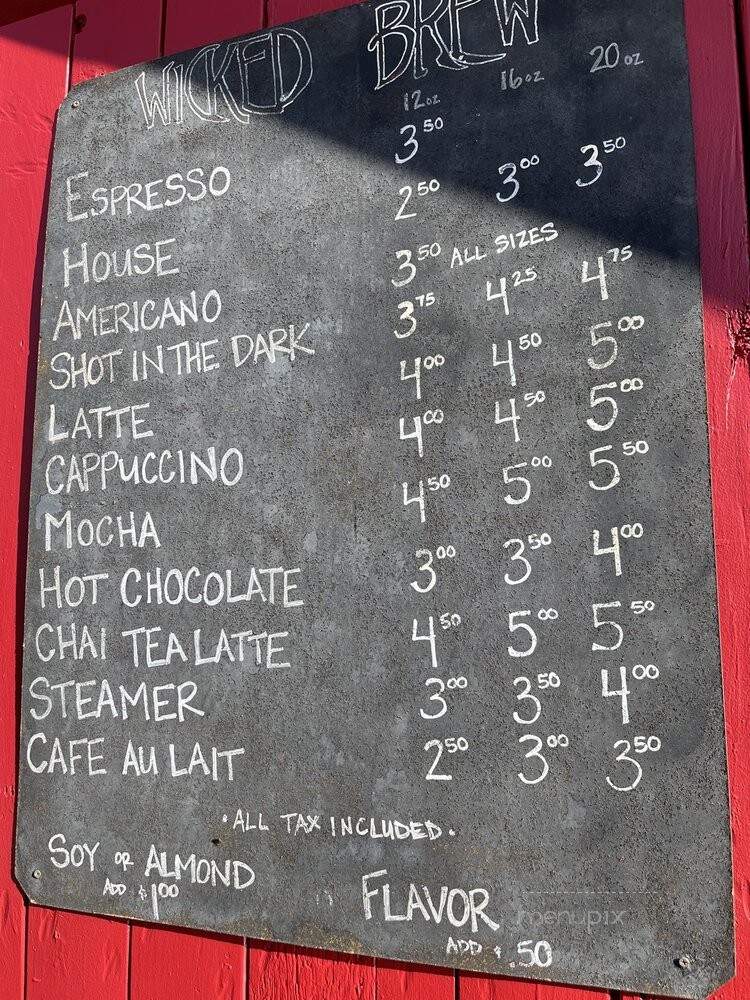 WICKED BREW
12oz 16oz 20oz
ESPRESSO 3⁵⁰
HOUSE 2⁵⁰ 3⁰⁰ 3⁵⁰
AMERICANO 3⁵⁰ ALL SIZES
SHOT IN THE DARK 3⁷⁵ 4²⁵ 4⁷⁵
LATTE 4⁰⁰ 4⁵⁰ 5⁰⁰
CAPPUCCINO 4⁰⁰ 4⁵⁰ 5⁰⁰
MOCHA 4⁵⁰ 5⁰⁰ 5⁵⁰
HOT CHOCOLATE 3⁰⁰ 3⁵⁰ 4⁰⁰
CHAI TEA LATTE 4⁵⁰ 5⁰⁰ 5⁵⁰
STEAMER 3⁰⁰ 3⁵⁰ 4⁰⁰
CAFE AU LAIT 2⁵⁰ 3⁰⁰ 3⁵⁰
·ALL TAX INCLUDED·
SOY OR ALMOND
ADD $1⁰⁰
FLAVOR
ADD $.50
menupix